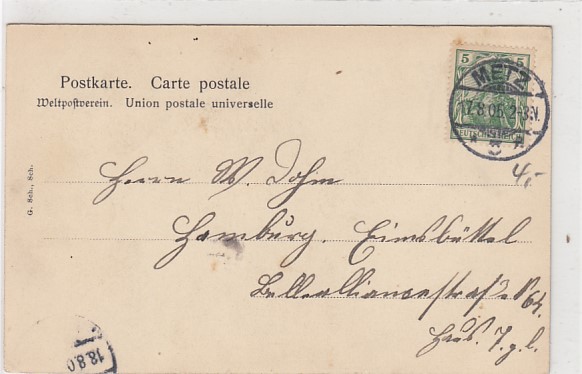 Postkarte. Carte postale
Weltpostverein. Union postale universelle
5 5
DEUTSCHES REICH
METZ
17.8.05. 2-3N.
4,-
G. Sch., Sch.
Herrn W. Dohm
Hamburg. Eimsbüttel
Bellealliancestraße No 64.
Haus. 7. g. l.
18.8.0